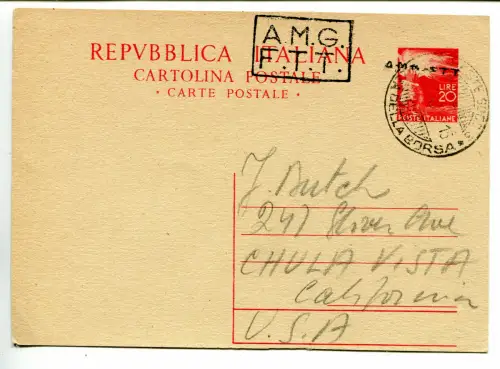 A.M.G.
F.T.T.
REPVBBLICA ITALIANA
CARTOLINA POSTALE
• CARTE POSTALE •
AMG-FTT
LIRE
20
POSTE ITALIANE
DELLA BORSA *
J. Butch
247 Glover Ave
CHULA VISTA
California
U.S.A